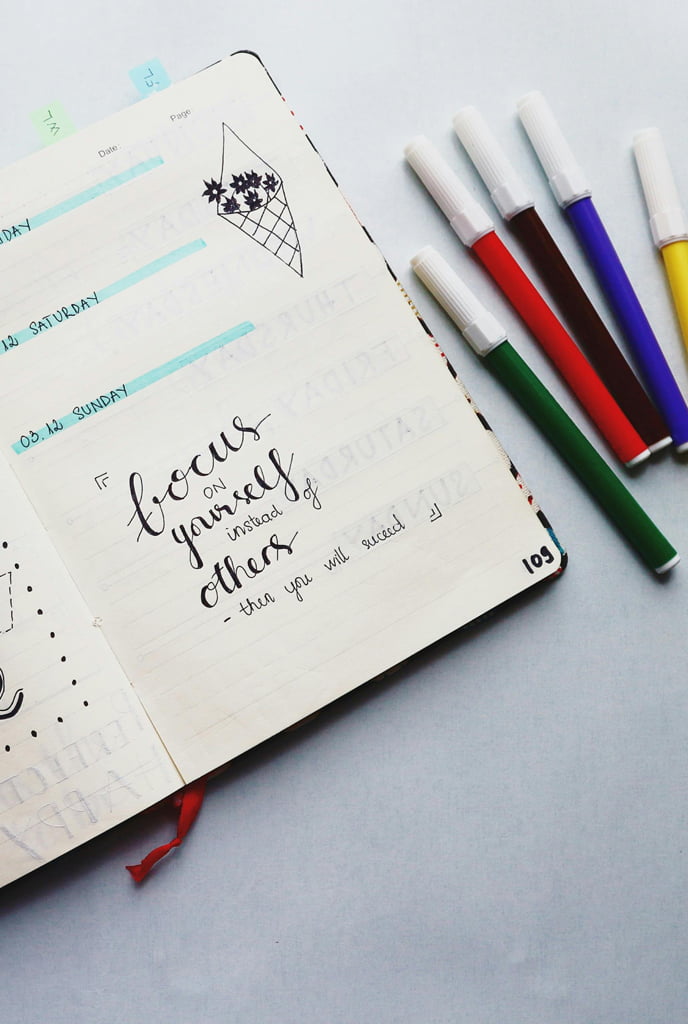 Date:
Page:
12 SATURDAY
03.12 SUNDAY
『focus
ON
yourself
instead of
others
- then you will succeed』
109